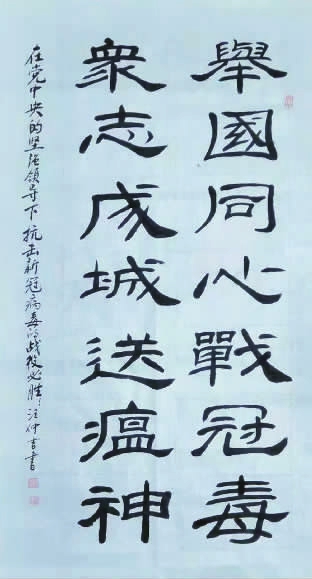 舉國同心戰冠毒
衆志成城送瘟神
在党中央的坚强领导下抗击新冠病毒的战役必胜！汪仲吉書